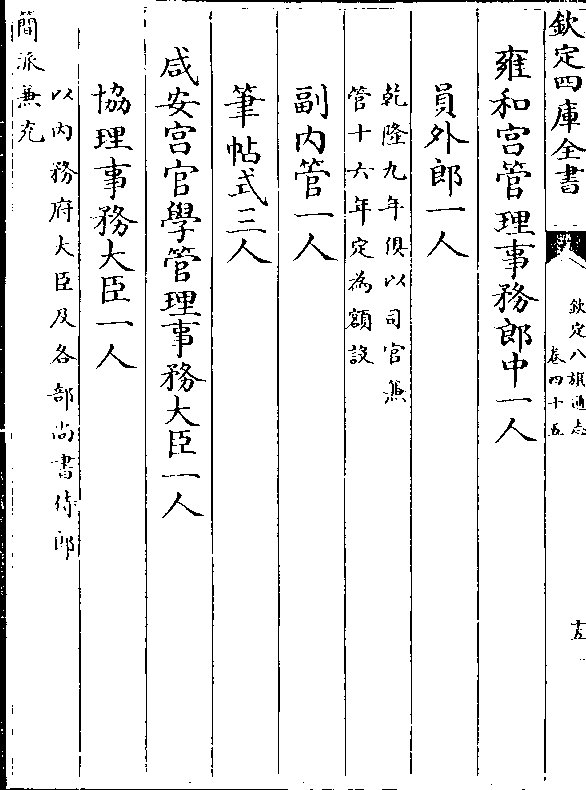 欽定四庫全書
欽定八旗通志
卷四十五
十五
雍和宮管理事務郎中一人
員外郎一人
乾隆九年俱以司官兼
管十六年定為額設
副內管一人
筆帖式三人
咸安宮官學管理事務大臣一人
協理事務大臣一人
以內務府大臣及各部尚書侍郎
簡派兼充